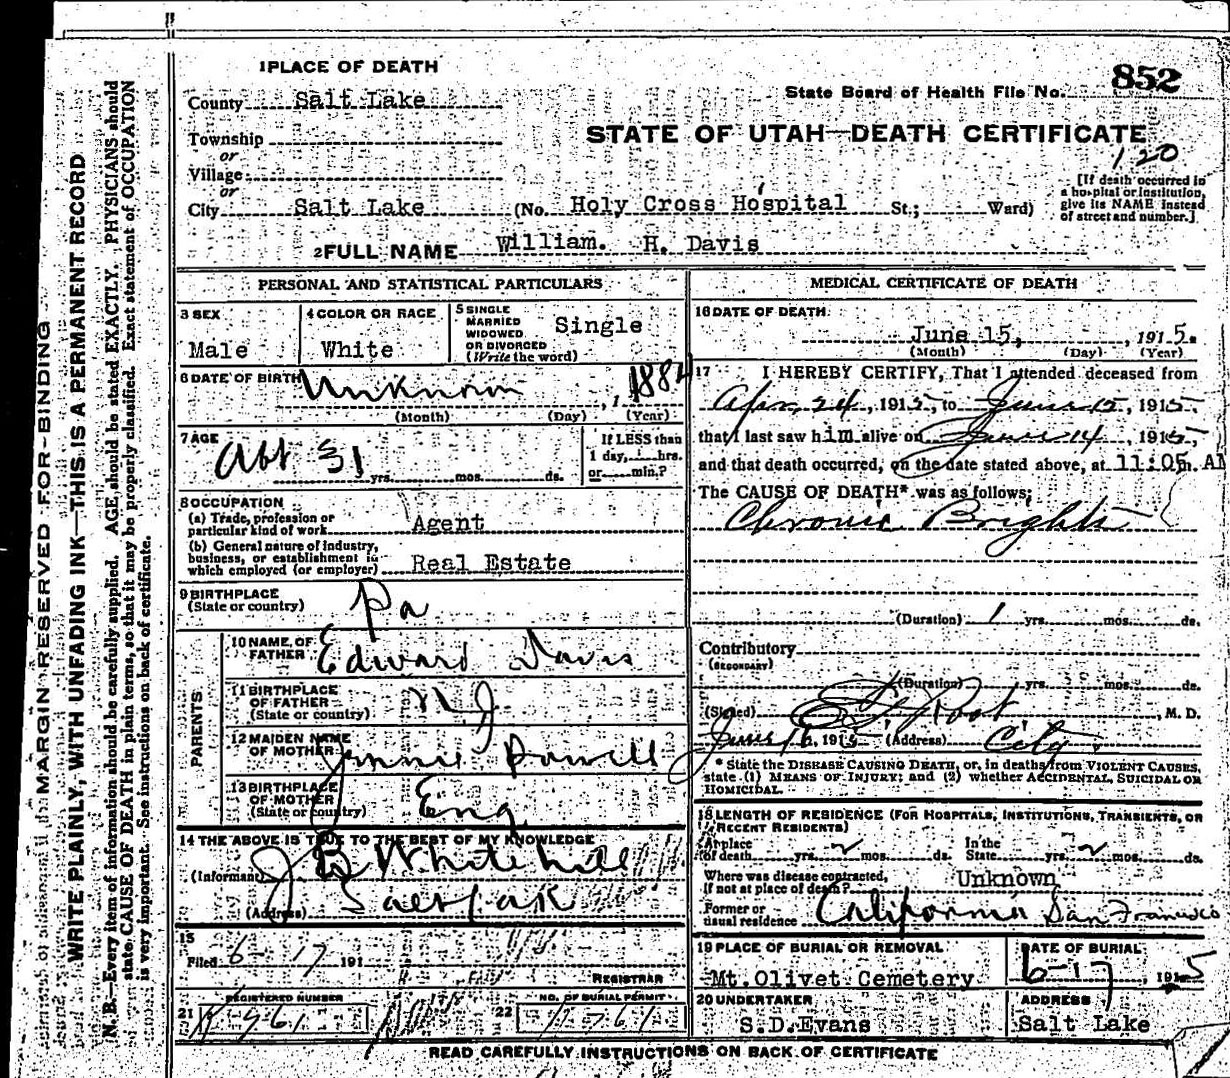 1 PLACE OF DEATH
County Salt Lake
Township
or
Village
or
City Salt Lake (No. Holy Cross Hospital St.; Ward)
2 FULL NAME William. H. Davis
State Board of Health File No. 852
STATE OF UTAH—DEATH CERTIFICATE
120
[If death occurred in
a hospital or institution,
give its NAME instead
of street and number.]
PERSONAL AND STATISTICAL PARTICULARS
3 SEX
Male
4 COLOR OR RACE
White
5 SINGLE
MARRIED
WIDOWED
OR DIVORCED
(Write the word)
Single
6 DATE OF BIRTH Unknown, 1884
(Month) (Day) (Year)
7 AGE
Abt 31 yrs. mos. ds.
If LESS than
1 day, hrs.
or min.?
8 OCCUPATION
(a) Trade, profession or
particular kind of work Agent
(b) General nature of industry,
business, or establishment in
which employed (or employer) Real Estate
9 BIRTHPLACE
(State or country) Pa
PARENTS
10 NAME OF
FATHER Edward Davis
11 BIRTHPLACE
OF FATHER
(State or country) NJ
12 MAIDEN NAME
OF MOTHER Jennie Powell
13 BIRTHPLACE
OF MOTHER
(State or country) Eng
14 THE ABOVE IS TRUE TO THE BEST OF MY KNOWLEDGE
(Informant) J B Whitehill
(Address) Salt Lak
15
Filed 6-17 191
REGISTRAR
REGISTERED NUMBER
21
22
NO. OF BURIAL PERMIT
MEDICAL CERTIFICATE OF DEATH
16 DATE OF DEATH
June 15, , 1915.
(Month) (Day) (Year)
17 I HEREBY CERTIFY, That I attended deceased from
Apr. 24, 1915, to June 15, 1915,
that I last saw him alive on June 14, 1915,
and that death occurred, on the date stated above, at 11:05 m. AM
The CAUSE OF DEATH* was as follows:
Chronic Brights
(Duration) 1 yrs. mos. ds.
Contributory
(SECONDARY)
(Duration) yrs. mos. ds.
(Signed) Root, M. D.
June 16, 1915 (Address) City.
* State the DISEASE CAUSING DEATH, or, in deaths from VIOLENT CAUSES,
state (1) MEANS OF INJURY; and (2) whether ACCIDENTAL, SUICIDAL OR
HOMICIDAL.
18 LENGTH OF RESIDENCE (FOR HOSPITALS, INSTITUTIONS, TRANSIENTS, OR
RECENT RESIDENTS)
At place
of death yrs. 2 mos. ds. In the
State yrs. 2 mos. ds.
Where was disease contracted,
if not at place of death? Unknown
Former or
usual residence California San Francisco
19 PLACE OF BURIAL OR REMOVAL
Mt. Olivet Cemetery
DATE OF BURIAL
6-17, 1915
20 UNDERTAKER
S.D.Evans
ADDRESS
Salt Lake
READ CAREFULLY INSTRUCTIONS ON BACK OF CERTIFICATE
MARGIN RESERVED FOR BINDING
WRITE PLAINLY, WITH UNFADING INK—THIS IS A PERMANENT RECORD
N. B.—Every item of information should be carefully supplied. AGE should be stated EXACTLY. PHYSICIANS should
state CAUSE OF DEATH in plain terms, so that it may be properly classified. Exact statement of OCCUPATION
is very important. See instructions on back of certificate.